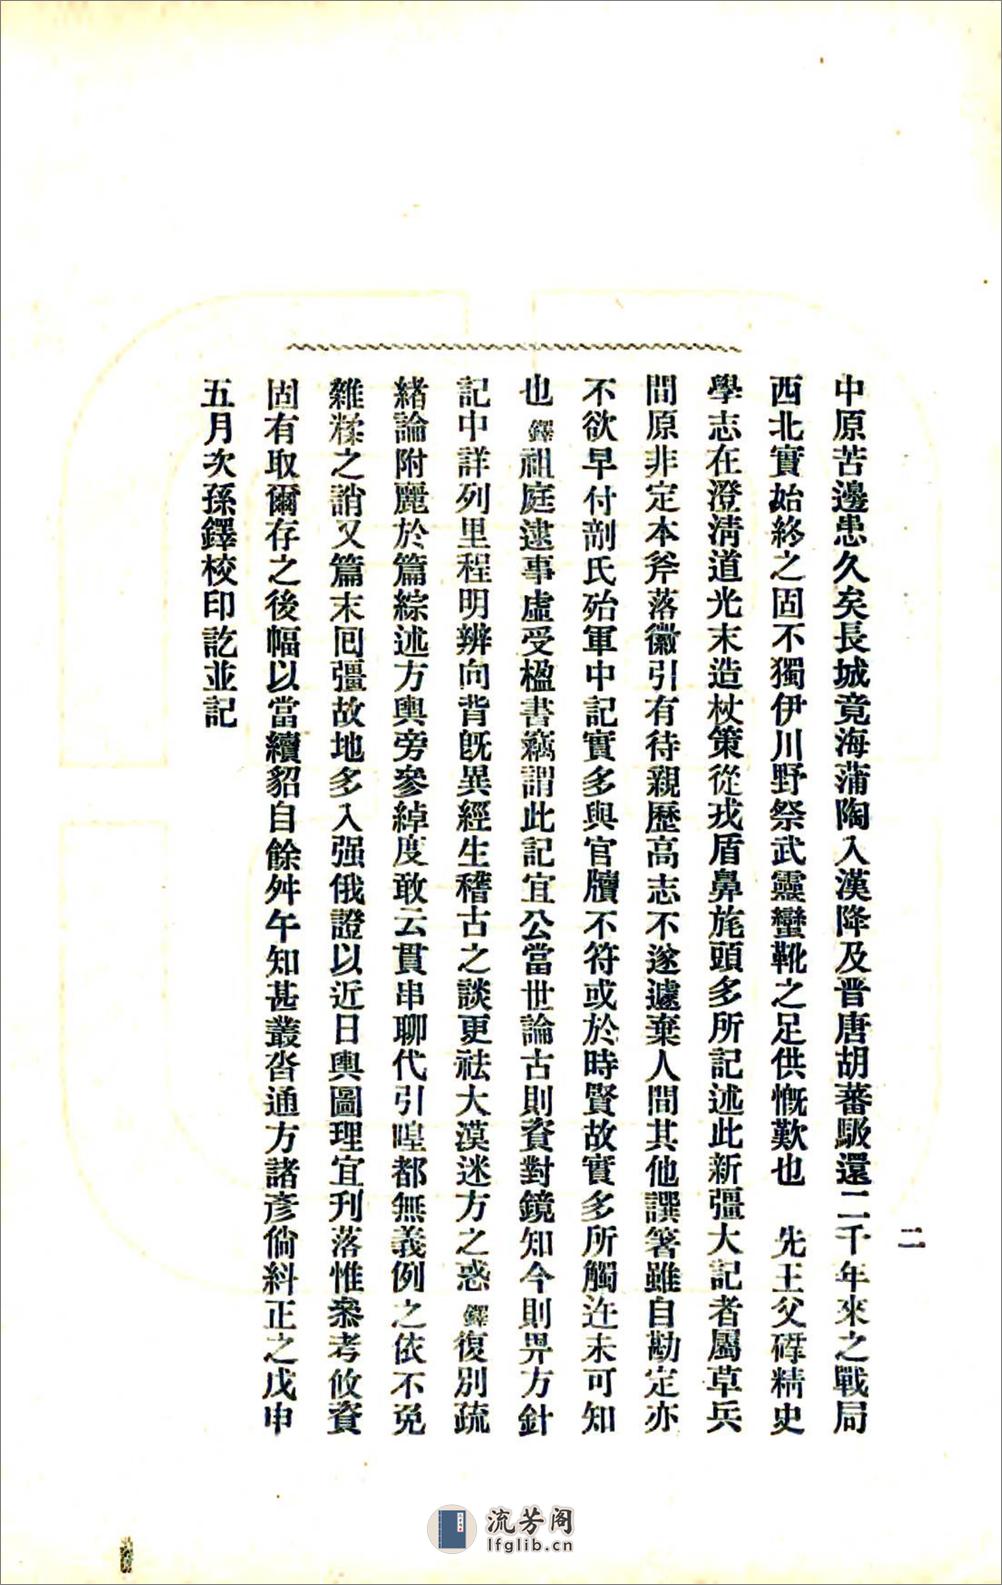 二
中原苦邊患久矣長城竟海蒲陶入漢降及晋唐胡蕃駆還二千年來之戰局
西北實始終之固不獨伊川野祭武靈蠻靴之足供慨歎也　先王父硏精史
學志在澄淸道光末造杖策從戎盾鼻旄頭多所記述此新疆大記者屬草兵
間原非定本斧落徽引有待親歷高志不遂遽棄人間其他譔箸雖自勘定亦
不欲早付剞氏殆軍中記實多與官牘不符或於時賢故實多所觸迕未可知
也鐸祖庭逮事虛受楹書竊謂此記宜公當世論古則資對鏡知今則畀方針
記中詳列里程明辨向背旣異經生稽古之談更祛大漠迷方之惑鐸復別疏
緖論附麗於篇綜述方輿旁參綽度敢云貫串聊代引喤都無義例之依不免
雜糅之誚又篇末回疆故地多入强俄證以近日輿圖理宜刋落惟叅考攸資
固有取爾存之後幅以當續貂自餘舛午知甚叢沓通方諸彥倘糾正之戊申
五月次孫鐸校印訖並記
流芳阁
lfglib.cn